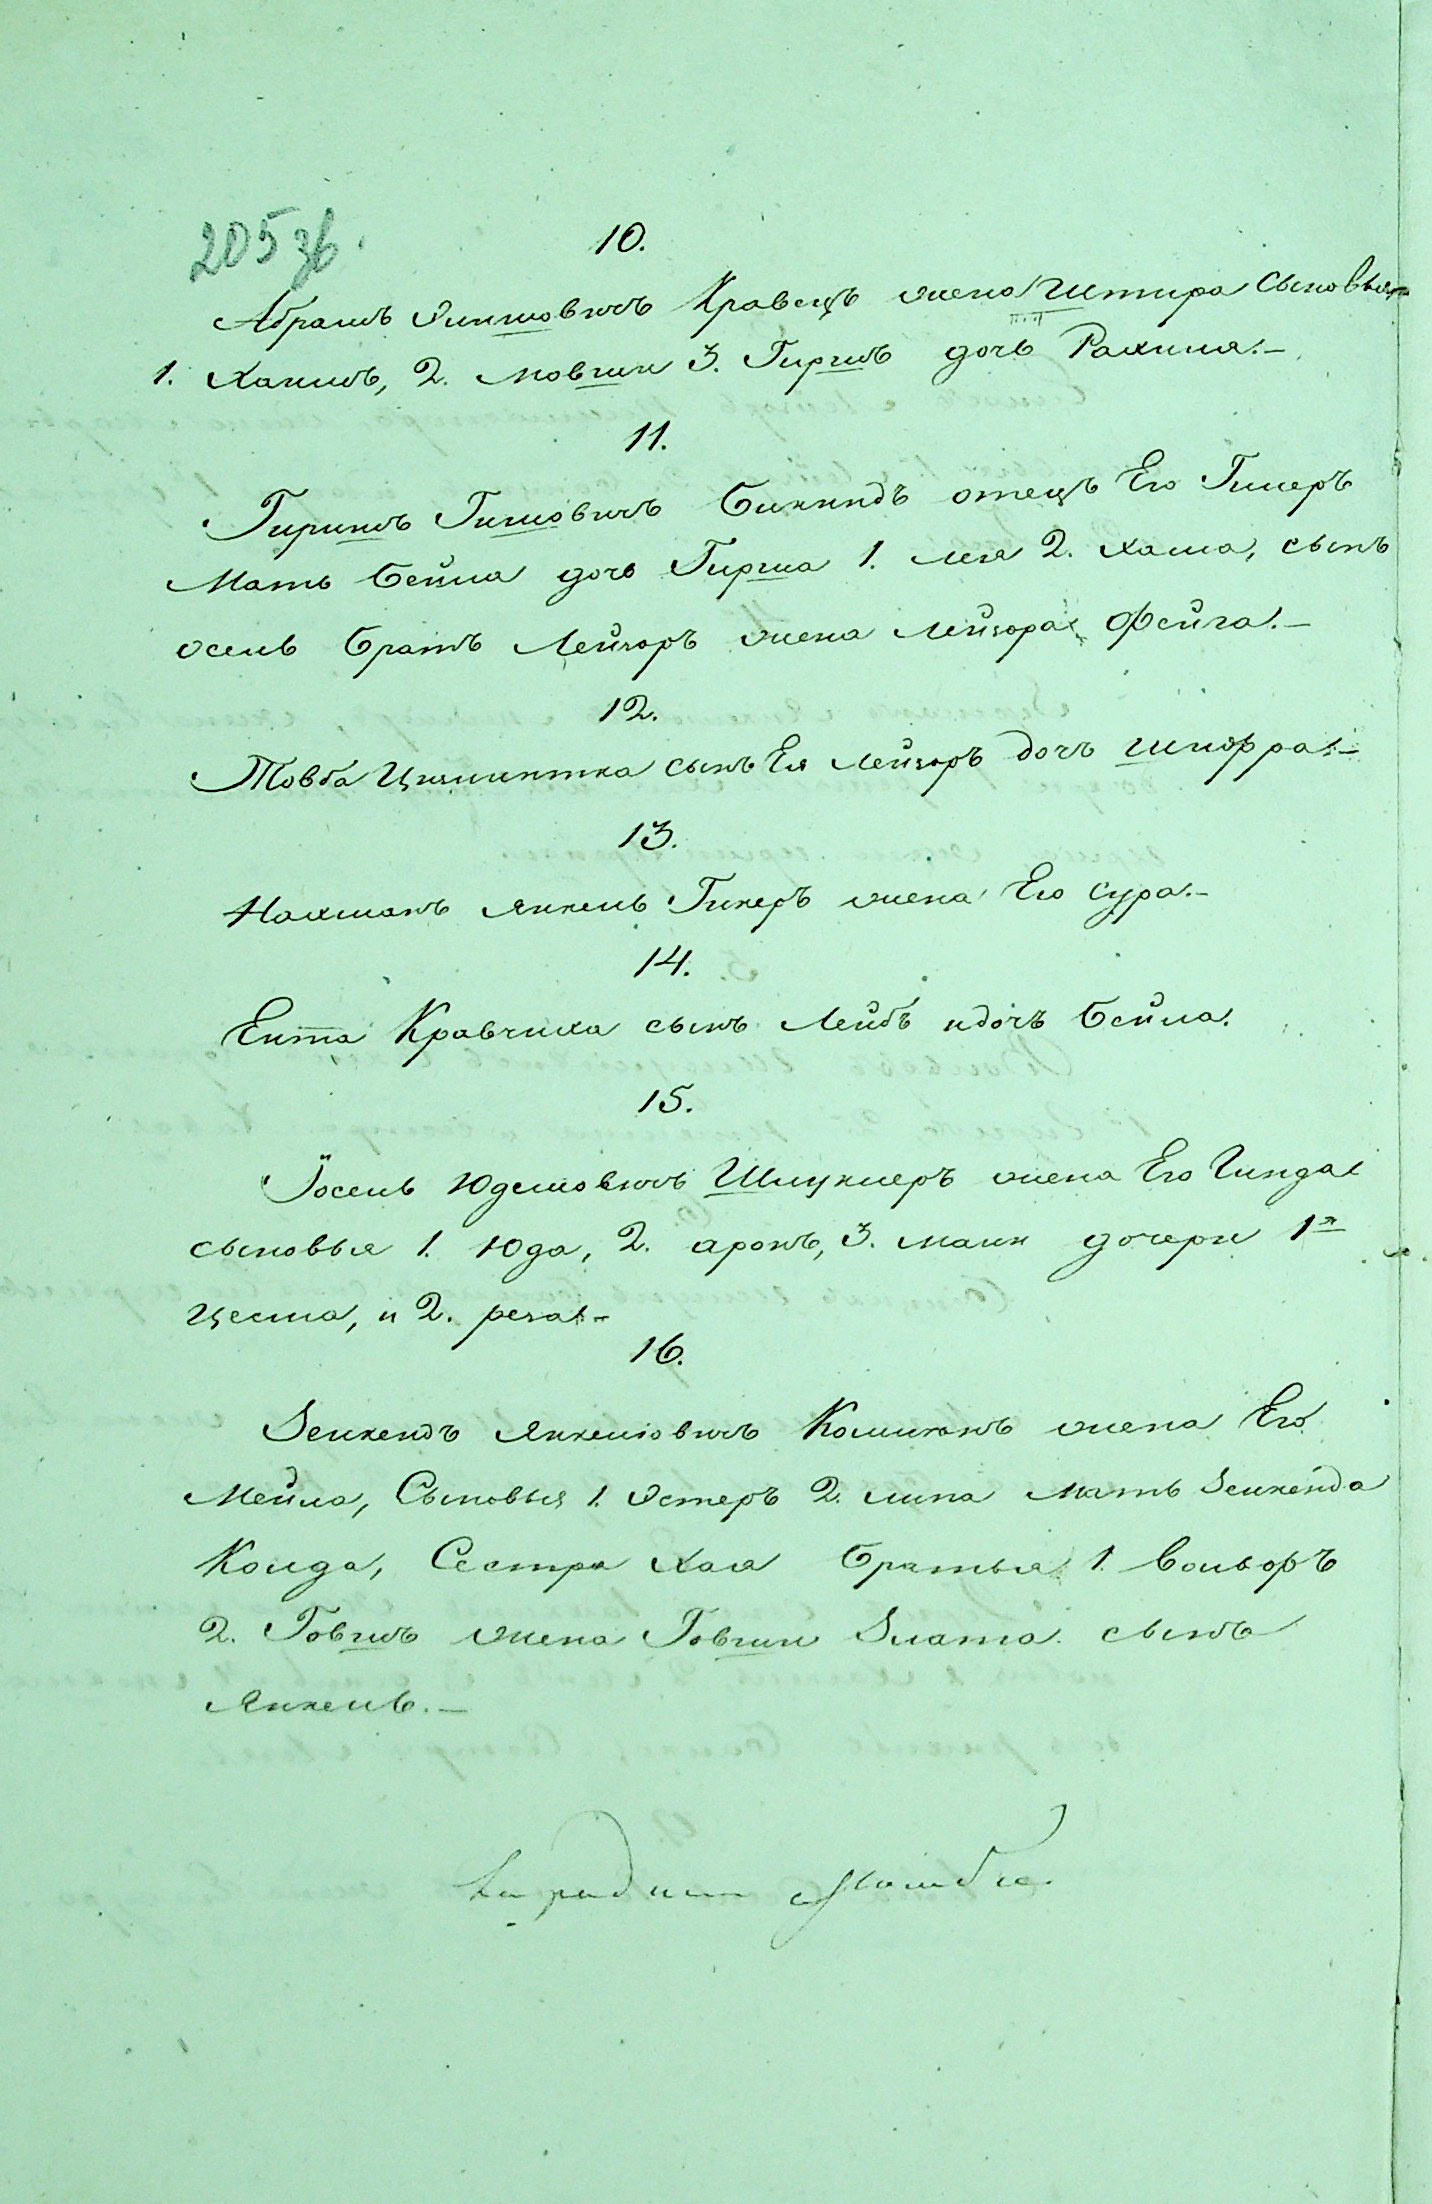 205 зв.
10.
Абрамъ Оишовичъ Кравецъ жена Штира Сыновья
1. Хаимъ, 2. Мовши 3. Гиршъ дочь Рахиля.-
11.
Гиршъ Гишовичъ Бикиндъ отецъ Его Гимеръ
Мать Бейла дочь Гирша 1. Лея 2. Хама, сынъ
осель братъ Лейзоръ жена Лейзора Фейга.-
12.
Товба сынъ Ея Лейзоръ дочъ Шифра.-
13.
Нахманъ Янкель Гикеръ жена Его Сура.-
14.
Ента Кравчиха сынъ Лейбъ и дочъ Бейла.
15.
Йосель Юделовичъ Шмуклеръ жена Его Гинда
сыновья 1. Юда, 2. Аронъ, 3. Мани дочери 1я
Цесма, и 2. реза.-
16.
Зейкендъ Янкеловичъ жена Его
Мейла, Сыновья 1. Остеръ 2. Липа Мать Зейкенда
Колда, Сестра Хая братья 1. Вольфъ
2. Говшъ жена Говши Злата. сынъ
Янкель.-